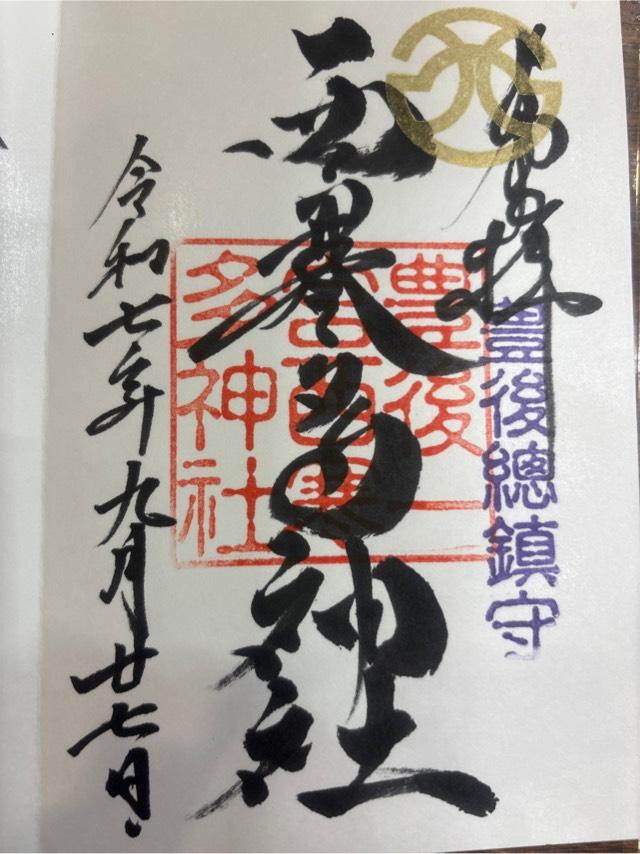 奉拝
豊後總鎮守
西寒多神社
豊後一
宮西寒
多神社
令和七年九月廿七日